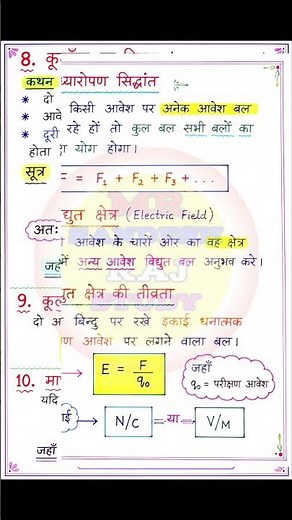 8. कू
कथन ध्यारोपण सिद्धांत
* दो किसी आवेश पर अनेक आवेश बल
* आवे
* दूरी रहे हों तो कुल बल सभी बलों का
होता योग होगा।
सूत्र = F₁ + F₂ + F₃ + ...
द्युत क्षेत्र (Electric Field)
अतः
आवेश के चारों ओर का वह क्षेत्र
जहाँ में अन्य आवेश विद्युत बल अनुभव करे।
9. कूलुत क्षेत्र की तीव्रता
दो अ बिन्दु पर रखे इकाई धनात्मक
ण आवेश पर लगने वाला बल।
E = F/q₀
जहाँ
q₀ = परीक्षण आवेश
10. मा
यदि
ाई → N/C = या → V/M
जहाँ